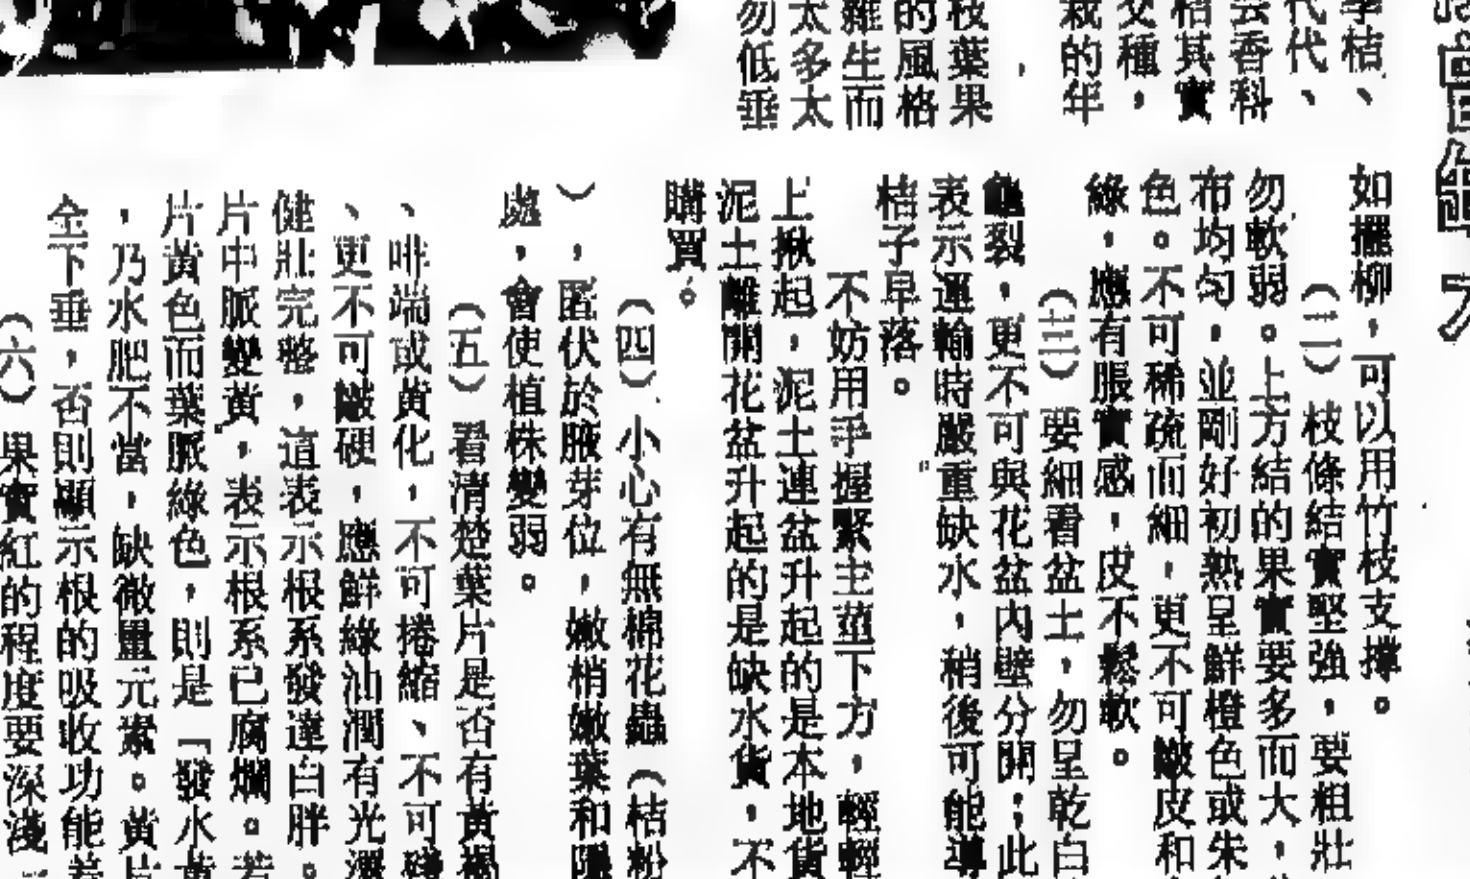 季桔、
代代、
雲香科
桔其實
交種，
栽的年
枝葉果
的風格
雜生而
太多太
勿低垂
如擺柳，可以用竹枝支撐。
（二）枝條結實堅強，要粗壯
勿軟弱。上方結的果實要多而大，
布均勻，並剛好初熟呈鮮橙色或朱
色。不可稀疏而細，更不可皺皮和
綠，應有脹實感，皮不鬆軟。
（三）要細看盆士，勿呈乾白
龜裂，更不可與花盆內壁分開；此
表示運輸時嚴重缺水，稍後可能導
桔子早落。
不妨用手握緊主莖下方，輕輕
上揪起，泥土連盆升起的是本地貨
泥土離開花盆升起的是缺水貨，不
購買。
（四）小心有無棉花蟲（桔粉
），匿伏於腋芽位，嫩梢嫩葉和隱
處，會使植株變弱。
（五）看清楚葉片是否有黃褐
、啡端或黃化，不可捲縮、不可殘
、更不可皺硬，應鮮綠油潤有光澤
健壯完整，這表示根系發達白胖。
片中脈變黃，表示根系已腐爛。若
片黃色而葉脈綠色，則是「發水黃
，乃水肥不當，缺微量元素。黃片
全下垂，否則顯示根的吸收功能差
（六）果實紅的程度要深淺